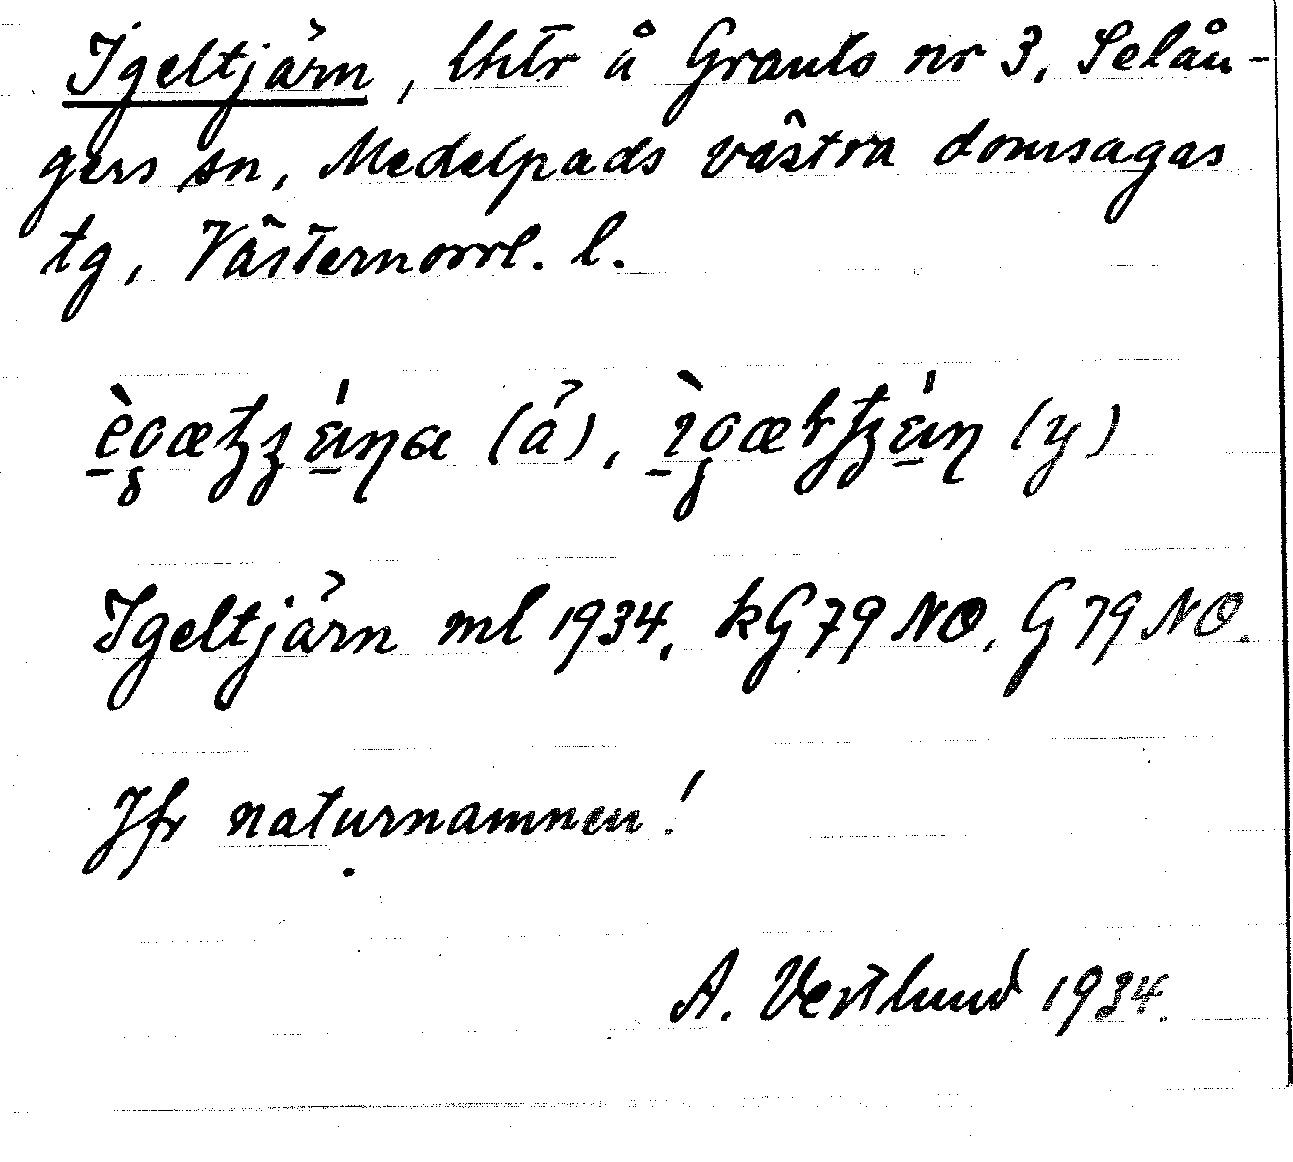 Igeltjärn, lhtr å Granlo nr 3, Selån-
gers sn, Medelpads västra domsagas
tg, Västernorrl. l.
(ä), (y)
Igeltjärn ml 1934. kG79NO, G79NO.
Jfr naturnamnen!
A. Vestlund 1934.